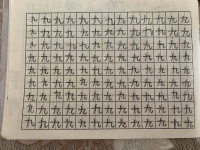 九九九九九九九九九九九九九
九九九九九九九九九九九九九
九九九九九九九九九九九九九
九九九九九九九九九九九九九
九九九九九九九九九九九九九
九九九九九九九九九九九九九
九九九九九九九九九九九九九
九九九九九九九九九九九九九
九九九九九九九九九九九九九